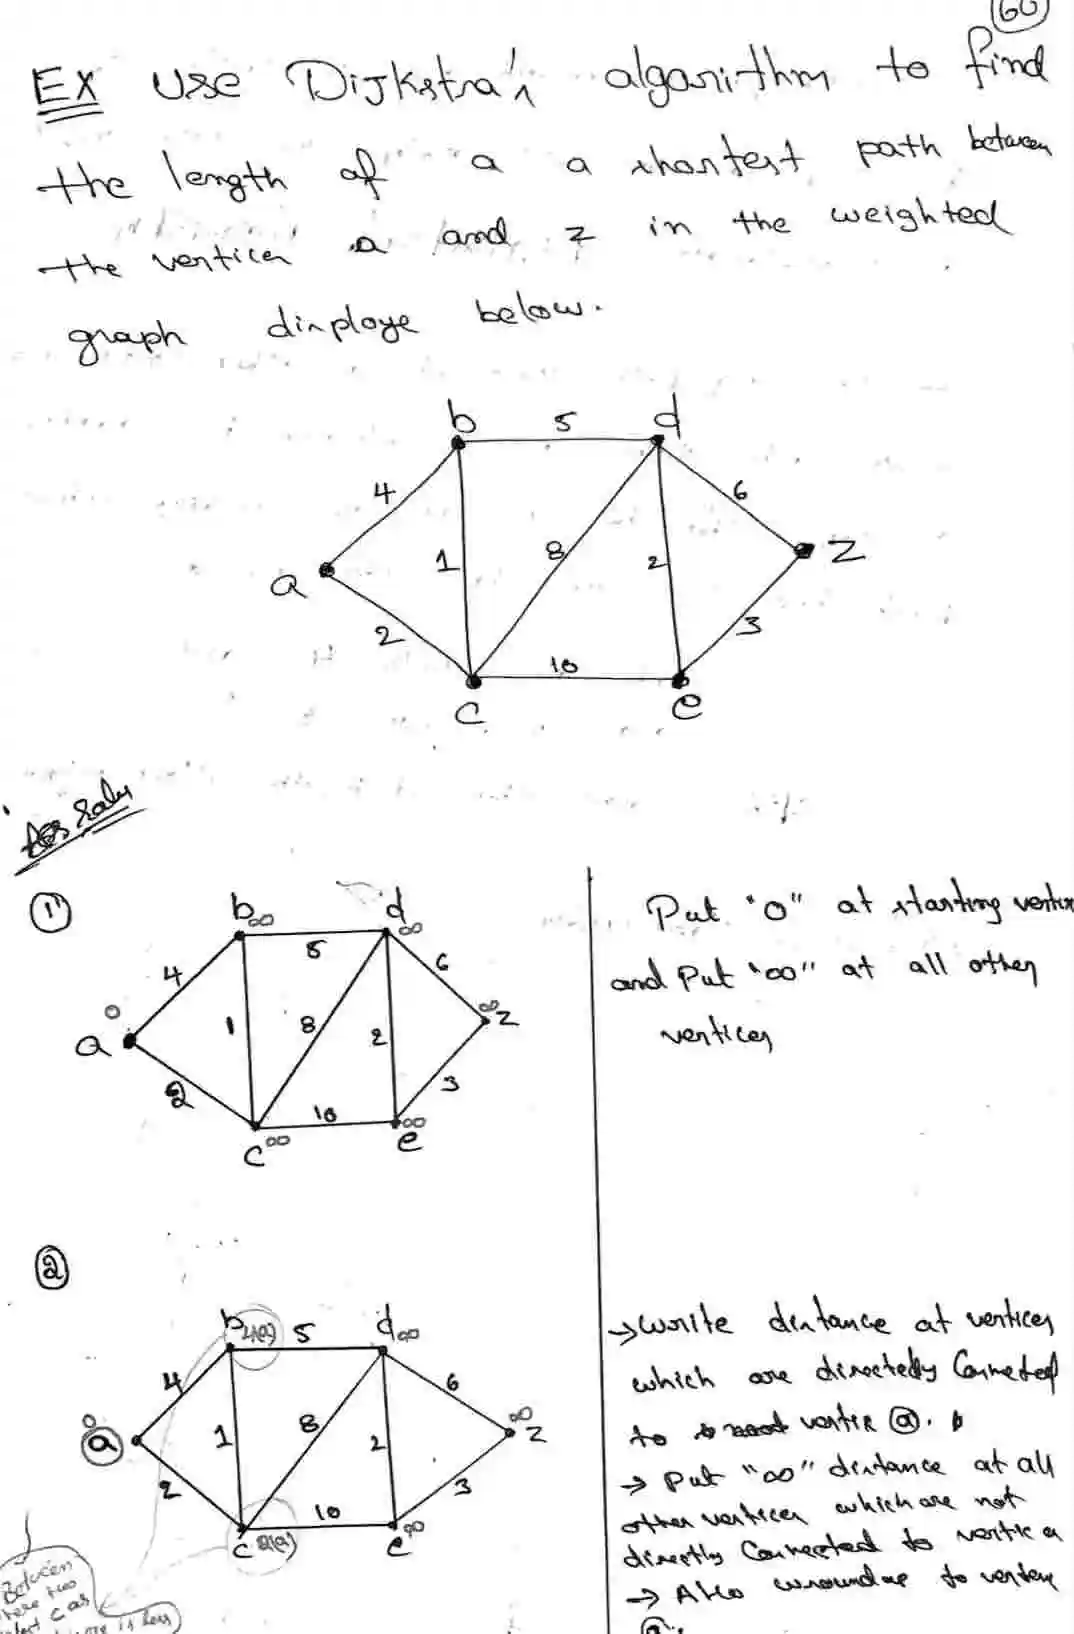 60
EX Use Dijkstra's algorithm to find
the length of a a shortest path between
the vertices a and z in the weighted
graph displaye below.
b 5 d
4 6
a 1 8 2 z
2 3
10
c e
①
b∞ d∞
5
4 6
0 ∞
a 1 8 2 z
2 3
10
c∞ e∞
Put "0" at starting vertix
and Put "∞" at all other
vertices
②
b 4(a) 5 d∞
4 6
0 ∞
a 1 8 2 z
2 3
10
c 2(a) e∞
→ write distance at vertices
which are directedly Connected
to vertix ⓐ.
→ Put "∞" distance at all
other vertices which are not
directly Connected to vertix a
→ Also
ⓐ.
Between
these two
select c as
is less